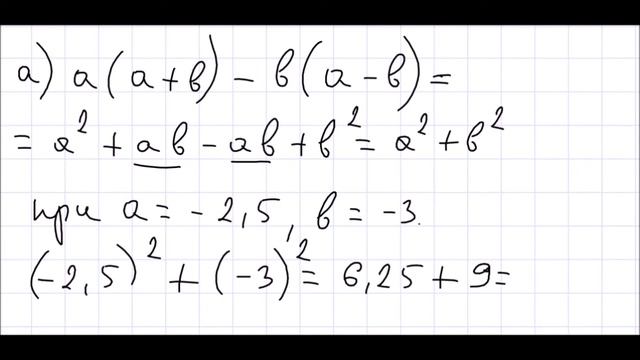 а) a(a+b) - b(a-b) =
= a² + ab - ab + b² = a² + b²
при a = -2,5, b = -3.
(-2,5)² + (-3)² = 6,25 + 9 =